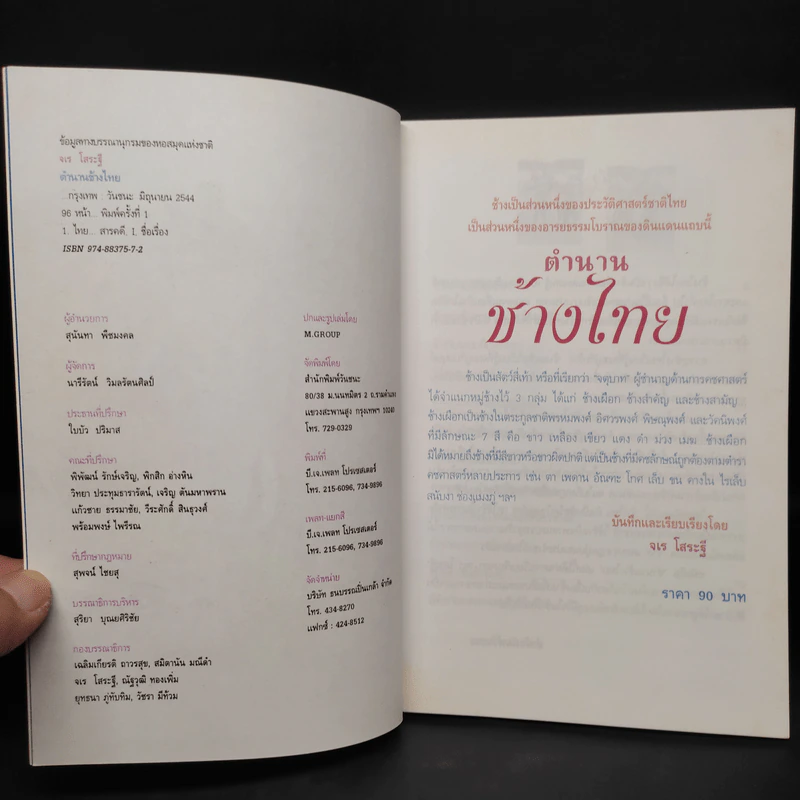 ข้อมูลทางบรรณานุกรมของหอสมุดแห่งชาติ
จเร โสระฐี
ตำนานช้างไทย
...กรุงเทพ : วันชนะ มิถุนายน 2544
96 หน้า... พิมพ์ครั้งที่ 1
1. ไทย... สารคดี, I. ชื่อเรื่อง
ISBN 974-88375-7-2
ผู้อำนวยการ
สุนันทา พืชมงคล
ผู้จัดการ
นารีรัตน์ วิมลรัตนศิลป์
ประธานที่ปรึกษา
ใบบัว ปริมาส
คณะที่ปรึกษา
พิพัฒน์ รักษ์เจริญ, พิกสิก อ่างหิน
วิทยา ประทุมธารารัตน์, เจริญ ตันมหาพราน
แก้วชาย ธรรมาชัย, วีระศักดิ์ สินธุวงศ์
พร้อมพงษ์ ไพรีรณ
ที่ปรึกษากฎหมาย
สุพจน์ ไชยสุ
บรรณาธิการบริหาร
สุริยา บุณยศิริชัย
กองบรรณาธิการ
เฉลิมเกียรติ ถาวรสุข, สมิตานัน มณีดำ
จเร โสระฐี, ณัฐวุฒิ ทองเพิ่ม
ยุทธนา ภู่ทับทิม, วัชรา มีท้วม
ปกและรูปเล่มโดย
M.GROUP
จัดพิมพ์โดย
สำนักพิมพ์วันชนะ
80/38 ม.นนทมิตร 2 ถ.รามคำแหง
แขวงสะพานสูง กรุงเทพฯ 10240
โทร. 729-0329
พิมพ์ที่
บี.เจ.เพลท โปรเซสเตอร์
โทร. 215-6096, 734-9896
เพลท-แยกสี
บี.เจ.เพลท โปรเซสเตอร์
โทร. 215-6096, 734-9896
จัดจำหน่าย
บริษัท ธนบรรณปิ่นเกล้า จำกัด
โทร. 434-8270
แฟกซ์ : 424-8512
ช้างเป็นส่วนหนึ่งของประวัติศาสตร์ชาติไทย
เป็นส่วนหนึ่งของอารยธรรมโบราณของดินแดนแถบนี้
ตำนาน
ช้างไทย
ช้างเป็นสัตว์สี่เท้า หรือที่เรียกว่า "จตุบาท" ผู้ชำนาญด้านการคชศาสตร์
ได้จำแนกหมู่ช้างไว้ 3 กลุ่ม ได้แก่ ช้างเผือก ช้างสำคัญ และช้างสามัญ
ช้างเผือกเป็นช้างในตระกูลชาติพรหมพงศ์ อิศวรพงศ์ พิษณุพงศ์ และวัคนิพงศ์
ที่มีลักษณะ 7 สี คือ ขาว เหลือง เขียว แดง ดำ ม่วง เมฆ ช้างเผือก
มิได้หมายถึงช้างที่มีสีขาวหรือขาวผิดปกติ แต่เป็นช้างที่มีคชลักษณ์ถูกต้องตามตำรา
คชศาสตร์หลายประการ เช่น ตา เพดาน อัณฑะ โกศ เล็บ ขน คางใน ไรเล็บ
สนับงา ช่องแมงภู่ ฯลฯ
บันทึกและเรียบเรียงโดย
จเร โสระฐี
ราคา 90 บาท